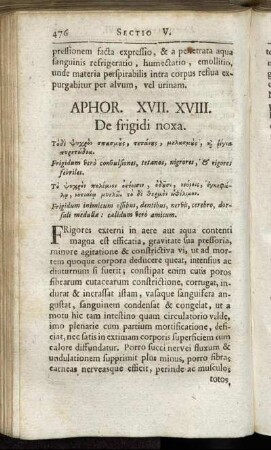 476 SECTIO V.
pressionem facta expressio, & a penetrata aqua
sanguinis refrigeratio, humectatio, emollitio,
unde materia perspirabilis intra corpus restua ex-
purgabitur per alvum, vel urinam.
APHOR. XVII. XVIII.
De frigidi noxa.
Frigidum verò convulsiones, tetanos, nigrores, & rigores
febriles.
Frigidum inimicum ossibus, dentibus, nervis, cerebro, dor-
sali medullæ: calidum verò amicum.
FRigores externi in aere aut aqua contenti
magna est efficatia, gravitate sua pressoria,
minorante agitatione & constrictiva vi, ut ad mor-
tem quoque corpora deducere queat, intensius ac
diuturnum si fuerit; constipat enim cutis poros
fibrarum cutacearum constrictione, corrugat, in-
durat & incrassat istam, vasaque sanguifera an-
gustat, sanguinem condensat & congelat, ut a
motu hic tam intestino quam circulatorio valde,
imo plenarie cum partium mortificatione, defi-
ciat, nec satis in extimam corporis superficiem cum
calore diffundatur. Porro succi nervei fluxum &
undulationem supprimit plus minus, porro fibras
carneas nerveasque efficit, perinde ac musculos
totos,